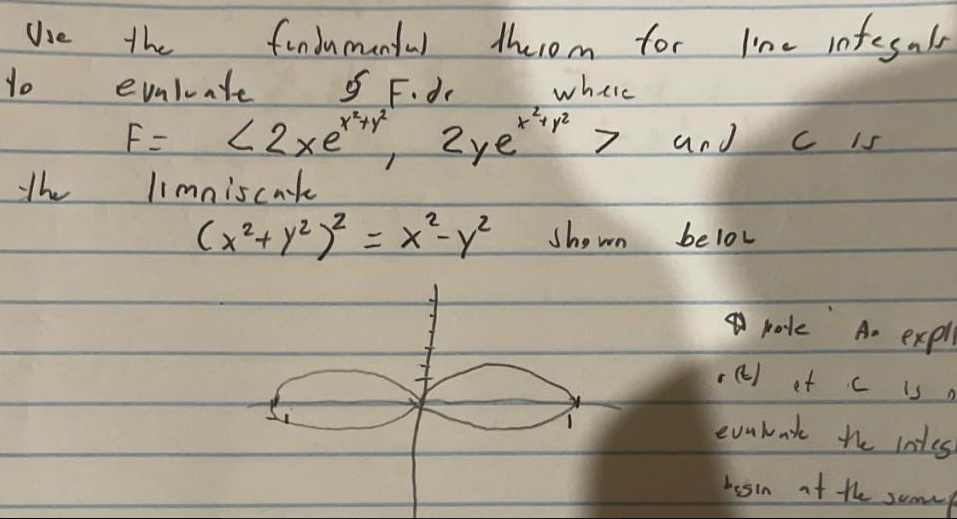 Use the fundumental therom for line integrals
to evaluate ∮ F.dr where
F= <2xe^{x²+y²}, 2ye^{x²+y²}> and C is
the limniscate
(x²+y²)² = x²-y² shown below
-1 1
note An expl
r(t) of C is n
evaluate the integ
begin at the same